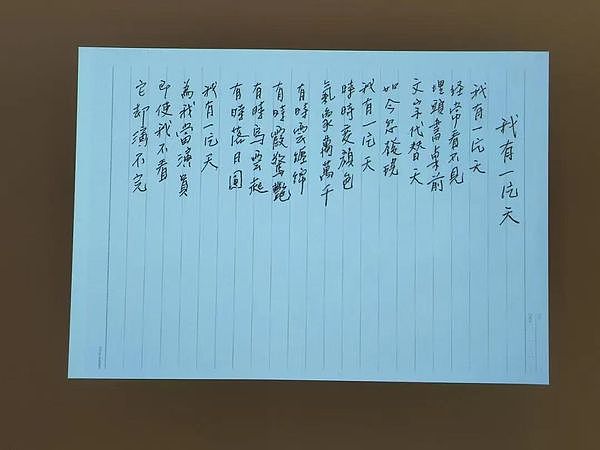 我有一片天
我有一片天
經常看不見
埋頭書桌前
文字代替天
如今忽發現
我有一片天
時時變顏色
氣象萬萬千
有時雲纏綿
有時霞驚艷
有時烏雲起
有時落日圓
我有一片天
為我當演員
即使我不看
它却演不完